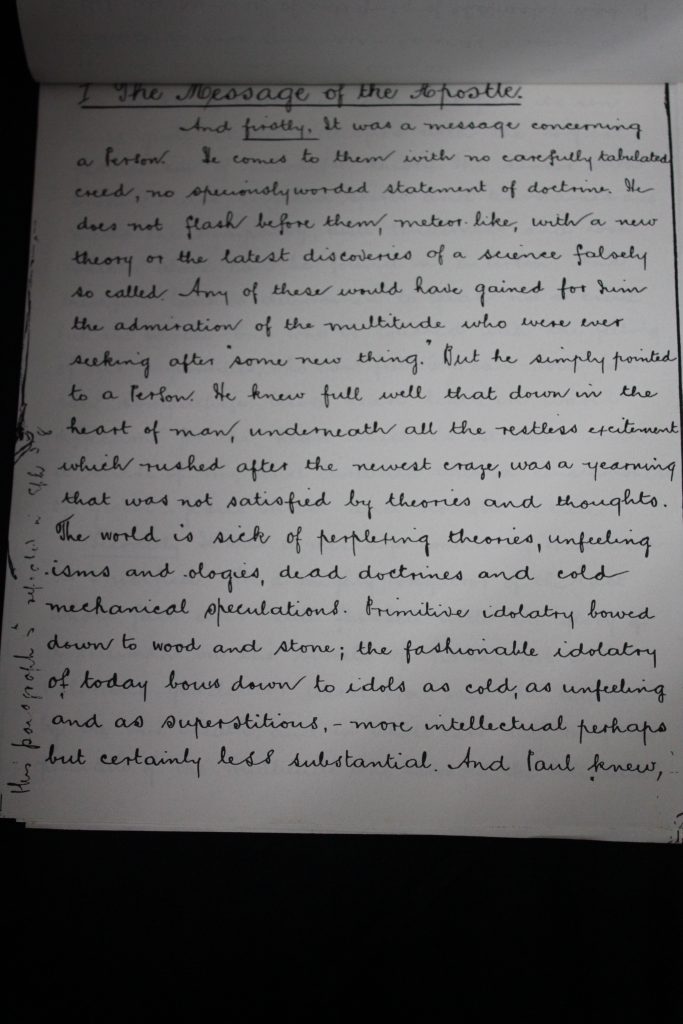 I The Message of the Apostle.
And firstly, It was a message concerning
a Person. He comes to them with no carefully tabulated
creed, no speciously worded statement of doctrine. He
does not flash before them, meteor-like, with a new
theory or the latest discoveries of a science falsely
so called. Any of these would have gained for him
the admiration of the multitude who were ever
seeking after "some new thing." But he simply pointed
to a Person. He knew full well that down in the
heart of man, underneath all the restless excitement
which rushed after the newest craze, was a yearning
that was not satisfied by theories and thoughts.
The world is sick of perplexing theories, unfeeling
-isms and -ologies, dead doctrines and cold
mechanical speculations. Primitive idolatry bowed
down to wood and stone; the fashionable idolatry
of today bows down to idols as cold, as unfeeling
and as superstitious, - more intellectual perhaps
but certainly less substantial. And Paul knew,
this paragraph is